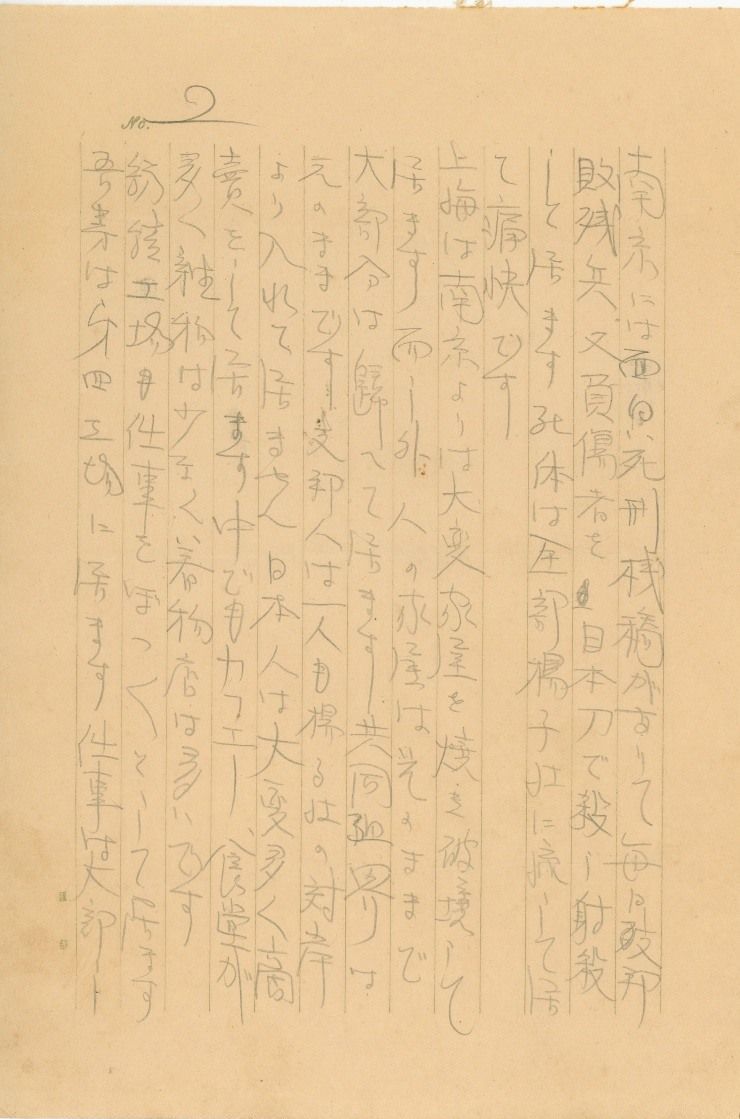 No. 2
南京には面白い死刑桟橋がありて毎日支那
敗残兵又負傷者を日本刀で殺し射殺
して居ます死体は全部楊子江に流して居
て痛快です
上海は南京よりは大変家屋を焼き破壊して
居ます而し外人の家屋は其のままで
大部分は歸へて居ます共同租界は
元のままです支那人は一人も楊子江の対岸
より入れて居ません日本人は大変多く商
賣をして居ます中でもカフエー、食堂が
多く雑物は少なく着物店は多いです
紡績工場も仕事をぼつ〱として居ます
吾隊は第四工場に居ます仕事は大部